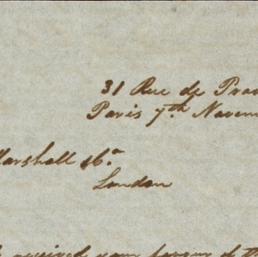 31 Rue de
Paris 7th
Marshall & Co
London
received your favour of the